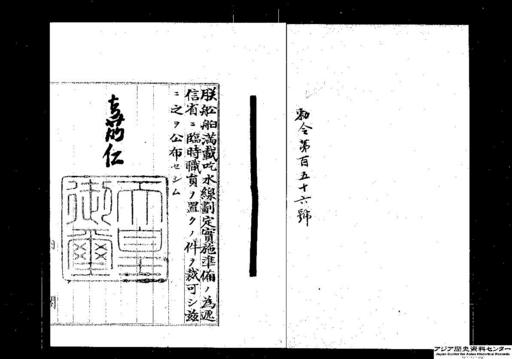 勅令第百五十六號
朕船舶滿載吃水線劃定實施準備ノ為遞
信省ニ臨時職員ヲ置クノ件ヲ裁可シ玆
ニ之ヲ公布セシム
嘉仁
天皇
御璽
内閣
アジア歴史資料センター
Japan Center for Asian Historical Records